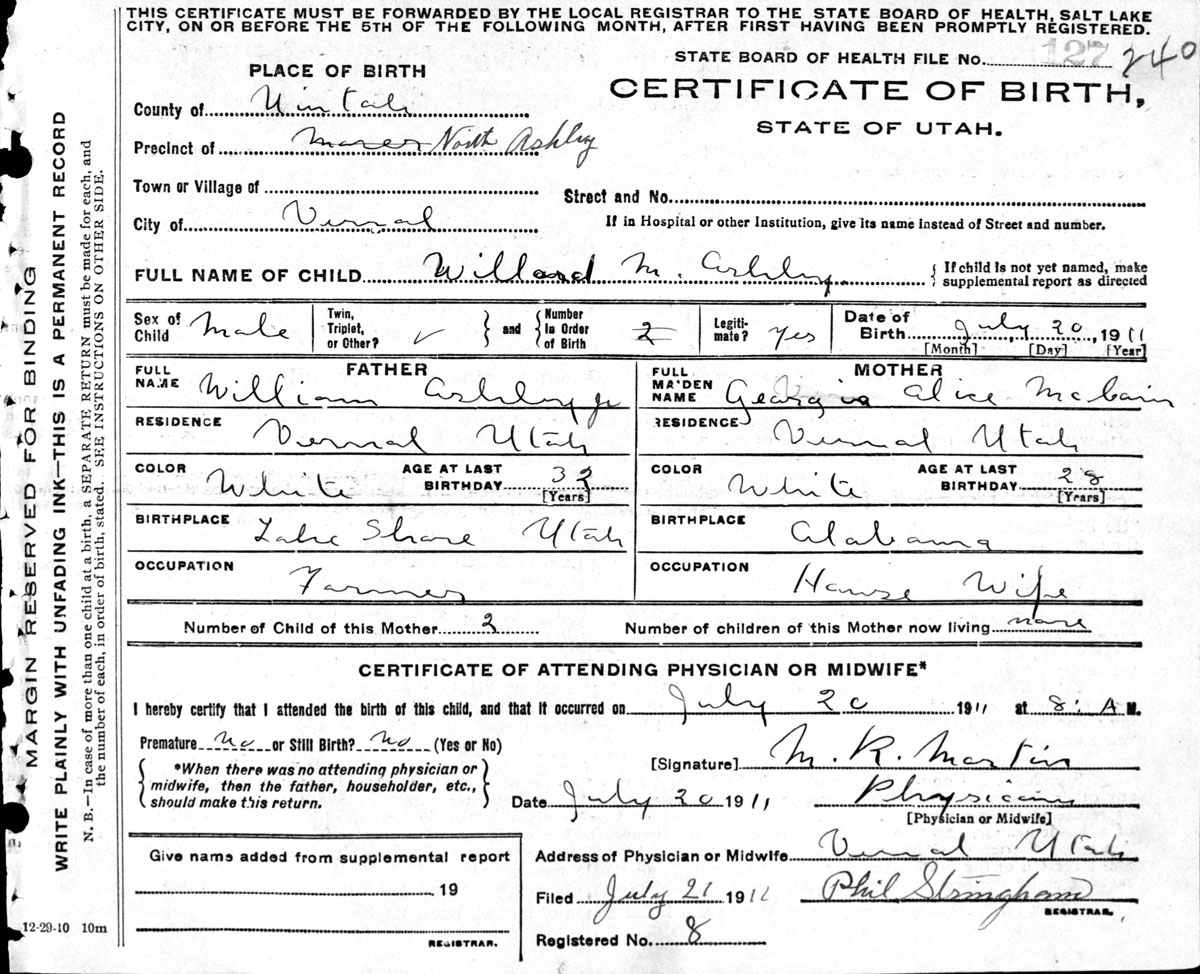 THIS CERTIFICATE MUST BE FORWARDED BY THE LOCAL REGISTRAR TO THE STATE BOARD OF HEALTH, SALT LAKE
CITY, ON OR BEFORE THE 5TH OF THE FOLLOWING MONTH, AFTER FIRST HAVING BEEN PROMPTLY REGISTERED.
STATE BOARD OF HEALTH FILE No. 127 240
PLACE OF BIRTH
CERTIFICATE OF BIRTH,
STATE OF UTAH.
County of Uintah
Precinct of North Ashley
Town or Village of
Street and No.
City of Vernal
If in Hospital or other Institution, give its name instead of Street and number.
FULL NAME OF CHILD Willard M. Ashby { If child is not yet named, make
supplemental report as directed
Sex of Child Male
Twin, Triplet, or Other? ✓ } and { Number In Order of Birth 2
Legiti- mate? Yes
Date of Birth July 20, 1911
[Month] [Day] [Year]
FATHER
FULL NAME William Ashby Jr
RESIDENCE Vernal Utah
COLOR White AGE AT LAST BIRTHDAY 32
[Years]
BIRTHPLACE Lake Shore Utah
OCCUPATION Farmer
MOTHER
FULL MAIDEN NAME Georgia Alice McCain
RESIDENCE Vernal Utah
COLOR White AGE AT LAST BIRTHDAY 28
[Years]
BIRTHPLACE Alabama
OCCUPATION House Wife
Number of Child of this Mother 2 Number of children of this Mother now living none
CERTIFICATE OF ATTENDING PHYSICIAN OR MIDWIFE*
I hereby certify that I attended the birth of this child, and that it occurred on July 20 1911 at 8: A M.
Premature No or Still Birth? No (Yes or No)
{ *When there was no attending physician or
midwife, then the father, householder, etc.,
should make this return. }
[Signature] M. R. Martin
Date July 20 1911 Physician
[Physician or Midwife]
Give name added from supplemental report
19
REGISTRAR.
Address of Physician or Midwife Vernal Utah
Filed July 21 1911 Phil Stringham
REGISTRAR.
Registered No. 8
12-29-10 10m
MARGIN RESERVED FOR BINDING
WRITE PLAINLY WITH UNFADING INK—THIS IS A PERMANENT RECORD
N. B.—In case of more than one child at a birth, a SEPARATE RETURN must be made for each, and
the number of each, in order of birth, stated. SEE INSTRUCTIONS ON OTHER SIDE.